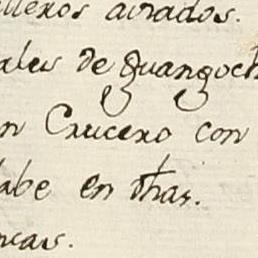 airados.
ales de Guangoch
n Crucero con
labe en dhas.
ncas.